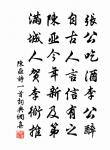 張公吃酒李公醉
自古人言信有之
陳亞今年新及第
滿城人賀李衙推
陳亞詩一首詞典網書